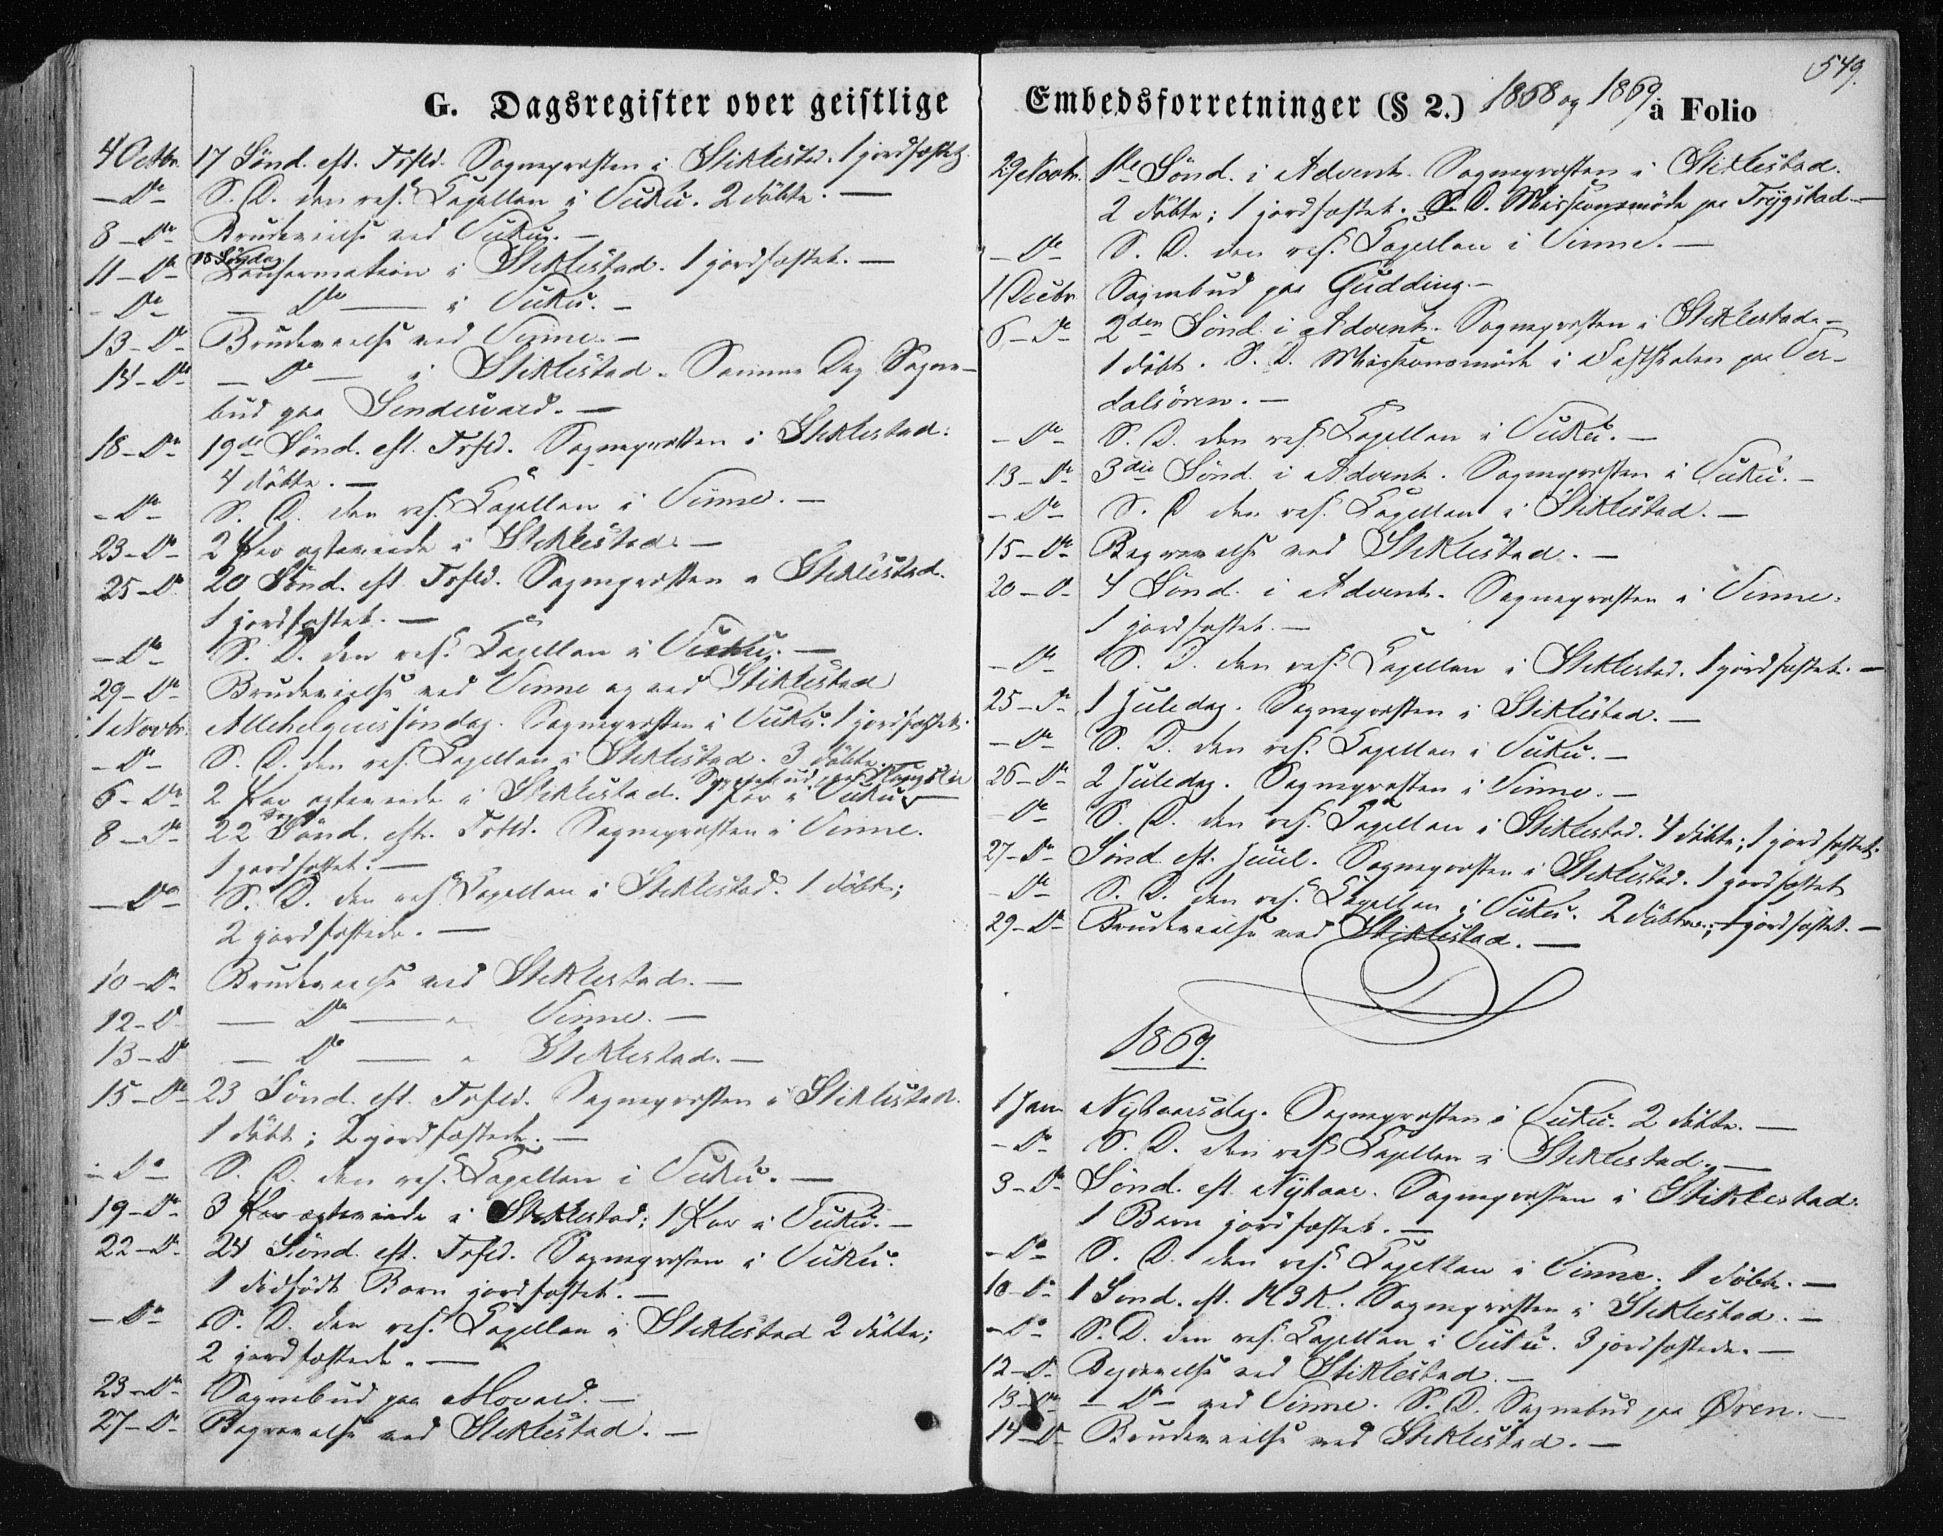 549.
G. Dagsregister over geistlige
4 Octbr. 17 Sønd. eft. Trftd. Sognepræsten i Stiklestad. 1 jordfæstet.
- Do - S. D. den res. Capellan i Vuku. 2 døbte. -
8 - Do - Brudevielse ved Vuku. -
18 Søndag
11 - Do - Confirmation i Stiklestad. 1 jordfæstet. -
- Do - - Do - i Vuku. -
13 - Do - Brudevielse ved Vinne. -
14 - Do - - Do - i Stiklestad. Samme Dag Sogne-
bud paa -
18 - Do - 19de Sønd. eft. Trftd. Sognepræsten i Stiklestad.
4 døbte. -
- Do - S. D. den res. Capellan i Vinne. -
23 - Do - 2 Par ægteviede i Stiklestad. -
25 - Do 20 Sønd. eft. Trftd. Sognepræsten i Stiklestad.
1 jordfæstet. -
- Do - S. D. den res. Capellan i Vuku. -
29 - Do - Brudevielse ved Vinne og ved Stiklestad
1 Novbr. Allehelgens søndag. Sognepræsten i Vuku. 1 jordfæstet.
- Do - S. D. den res. Capellan i Stiklestad. 3 døbte.
Sognebud paa
6 - Do - 2 Par ægteviede i Stiklestad. 1 Par i Vuku -
8 - Do - 22 Sønd. eft. Trftd. Sognepræsten i Vinne.
1 jordfæstet. -
- Do - S. D. den res. Capellan i Stiklestad. 1 døbt;
2 jordfæstede. -
10 - Do - Brudevielse ved Stiklestad. -
12 - Do - - Do - " Vinne. -
13 - Do - Do - " Stiklestad. -
15 - Do - 23 Sønd. eft. Trftd. Sognepræsten i Stiklestad.
1 døbt; 2 jordfæstede. -
- Do - S. D. den res. Capellan i Vuku. -
19 - Do - 3 Par ægteviede i Stiklestad; 1 Par i Vuku. -
22 - Do - 24 Sønd. eft. Trftd. Sognepræsten i Vuku.
1 dødfødt Barn jordfæstet. -
- Do - S. D. den res. Capellan i Stiklestad 2 døbte;
2 jordfæstede. -
23 - Do - Sognebud paa Movald. -
27 - Do - Begravelse ved Stiklestad. -
Embedsforretninger (§ 2.) 1868 og 1869 à Folio
29 Novbr. 1ste Sønd. i Advent. Sognepræsten i Stiklestad.
2 døbte; 1 jordfæstet. S. D. Missionsmøde paa Trygstad -
- Do - S. D. den res. Capellan i Vinne. -
1 Decbr. Sognebud paa Gudding. -
6 - Do - 2den Sønd. i Advent. Sognepræsten i Stiklestad. -
1 døbt. S. D. Missionsmøde i paa Ver-
dalsøren. -
- Do - S. D. den res. Capellan i Vuku. -
13 - Do - 3die Sønd. i Advent. Sognepræsten i Vuku. -
- Do - S. D den res. Capellan i Stiklestad. -
15 - Do - Begravelse ved Stiklestad. -
20 - Do - 4 Sønd. i Advent. Sognepræsten i Vinne.
1 jordfæstet. -
- Do - S. D. den res. Capellan i Stiklestad. 1 jordfæstet. -
25 - Do - 1 Juledag. Sognepræsten i Stiklestad. -
- Do - S. D. den res. Capellan i Vuku. -
26 - Do - 2 Juledag. Sognepræsten i Vinne. -
- Do - S. D. den res. Capellan i Stiklestad. 4 døbte; 1 jordfæstet.
27 - Do - Sønd. eft. Juul. Sognepræsten i Stiklestad. 1 jordfæstet
- Do - S. D. den res. Capellan i Vuku. 2 døbte; 1 jordfæstet. -
29 - Do - Brudevielse ved Stiklestad. -
1869.
1 Jan. Nytaarsdag. Sognepræsten i Vuku. 2 døbte. -
- Do - S. D. den res. Capellan i Stiklestad. -
3 - Do - Sønd. eft. Nytaar. Sognepræsten i Stiklestad.
1 Barn jordfæstet. -
- Do - S. D. den res. Capellan i Vinne. 1 døbt. -
10 - Do - 1 Sønd. eft. H3K. Sognepræsten i Stiklestad. -
- Do - S. D. den res. Capellan i Vuku. 3 jordfæstede. -
12 - Do Begravelse ved Stiklestad. -
13 - Do - - Do - ved Vinne. S. D. Sognebud paa Øren. -
14 - Do - Brudevielse ved Stiklestad. -